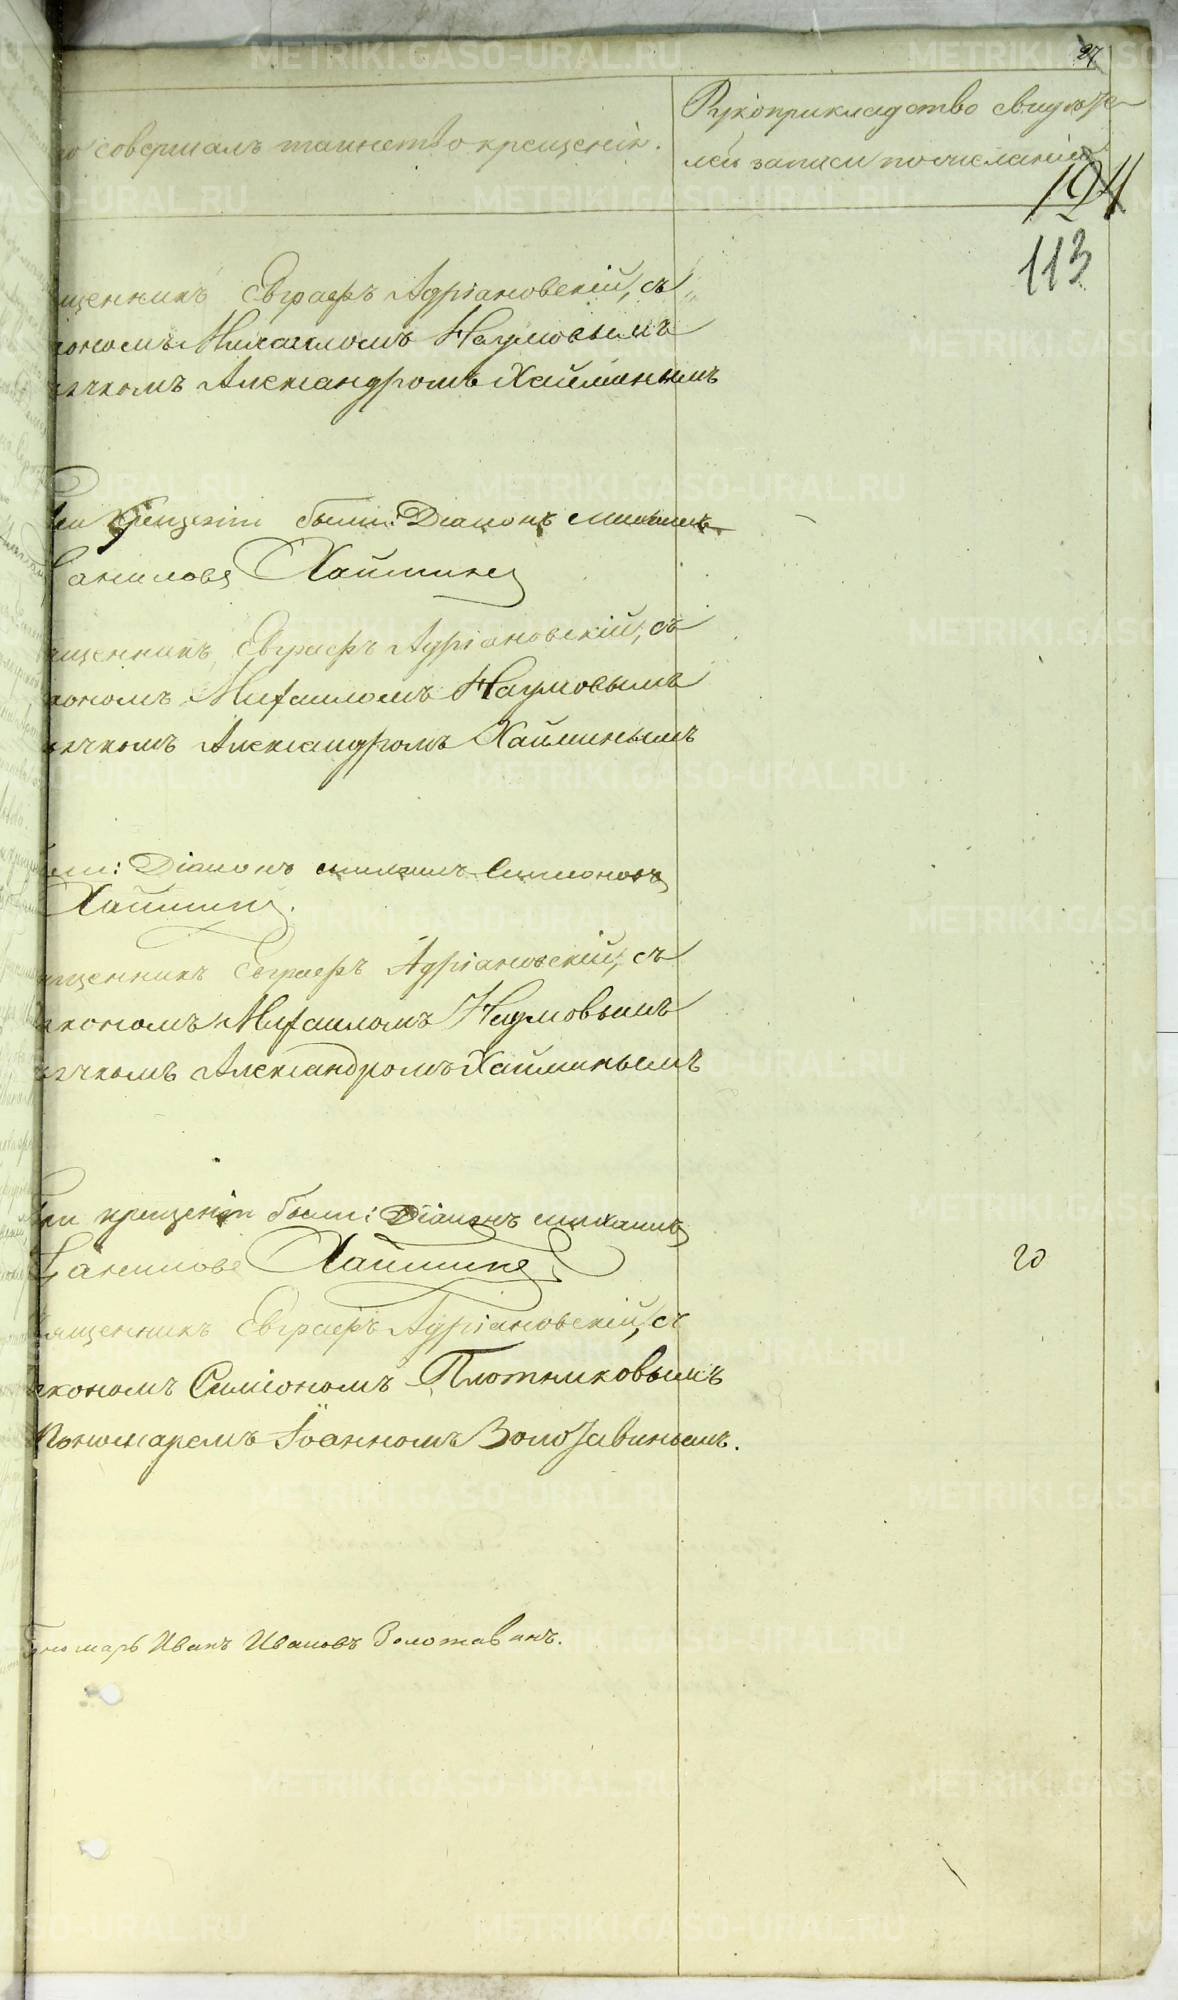 27
совершалъ таинство крещенія.
Рукоприкладство свидѣте-
лей записи по желанію
124
113
щенникъ Евграфъ Адріановскій, съ
кономъ Михаиломъ Наумовымъ
ячкомъ Александромъ Хайминымъ
крещеніи были: Діаконъ Михаилъ
Хайминъ
щенникъ Евграфъ Адріановскій, съ
кономъ Михаиломъ Наумовымъ
ячкомъ Александромъ Хайминымъ
Діаконъ
Хайминъ.
щенникъ Евграфъ Адріановскій, съ
кономъ Михаиломъ Наумовымъ
ячкомъ Александромъ Хайминымъ
при крещеніи были: Діаконъ Михаилъ
Хайминъ
20
ященникъ Евграфъ Адріановскій, съ
якономъ Симіономъ Плотниковымъ
Пономаремъ Іоанномъ Золотавинымъ.
Пономарь Иванъ Ивановъ Золотавинъ.
METRIKI.GASO-URAL.RU